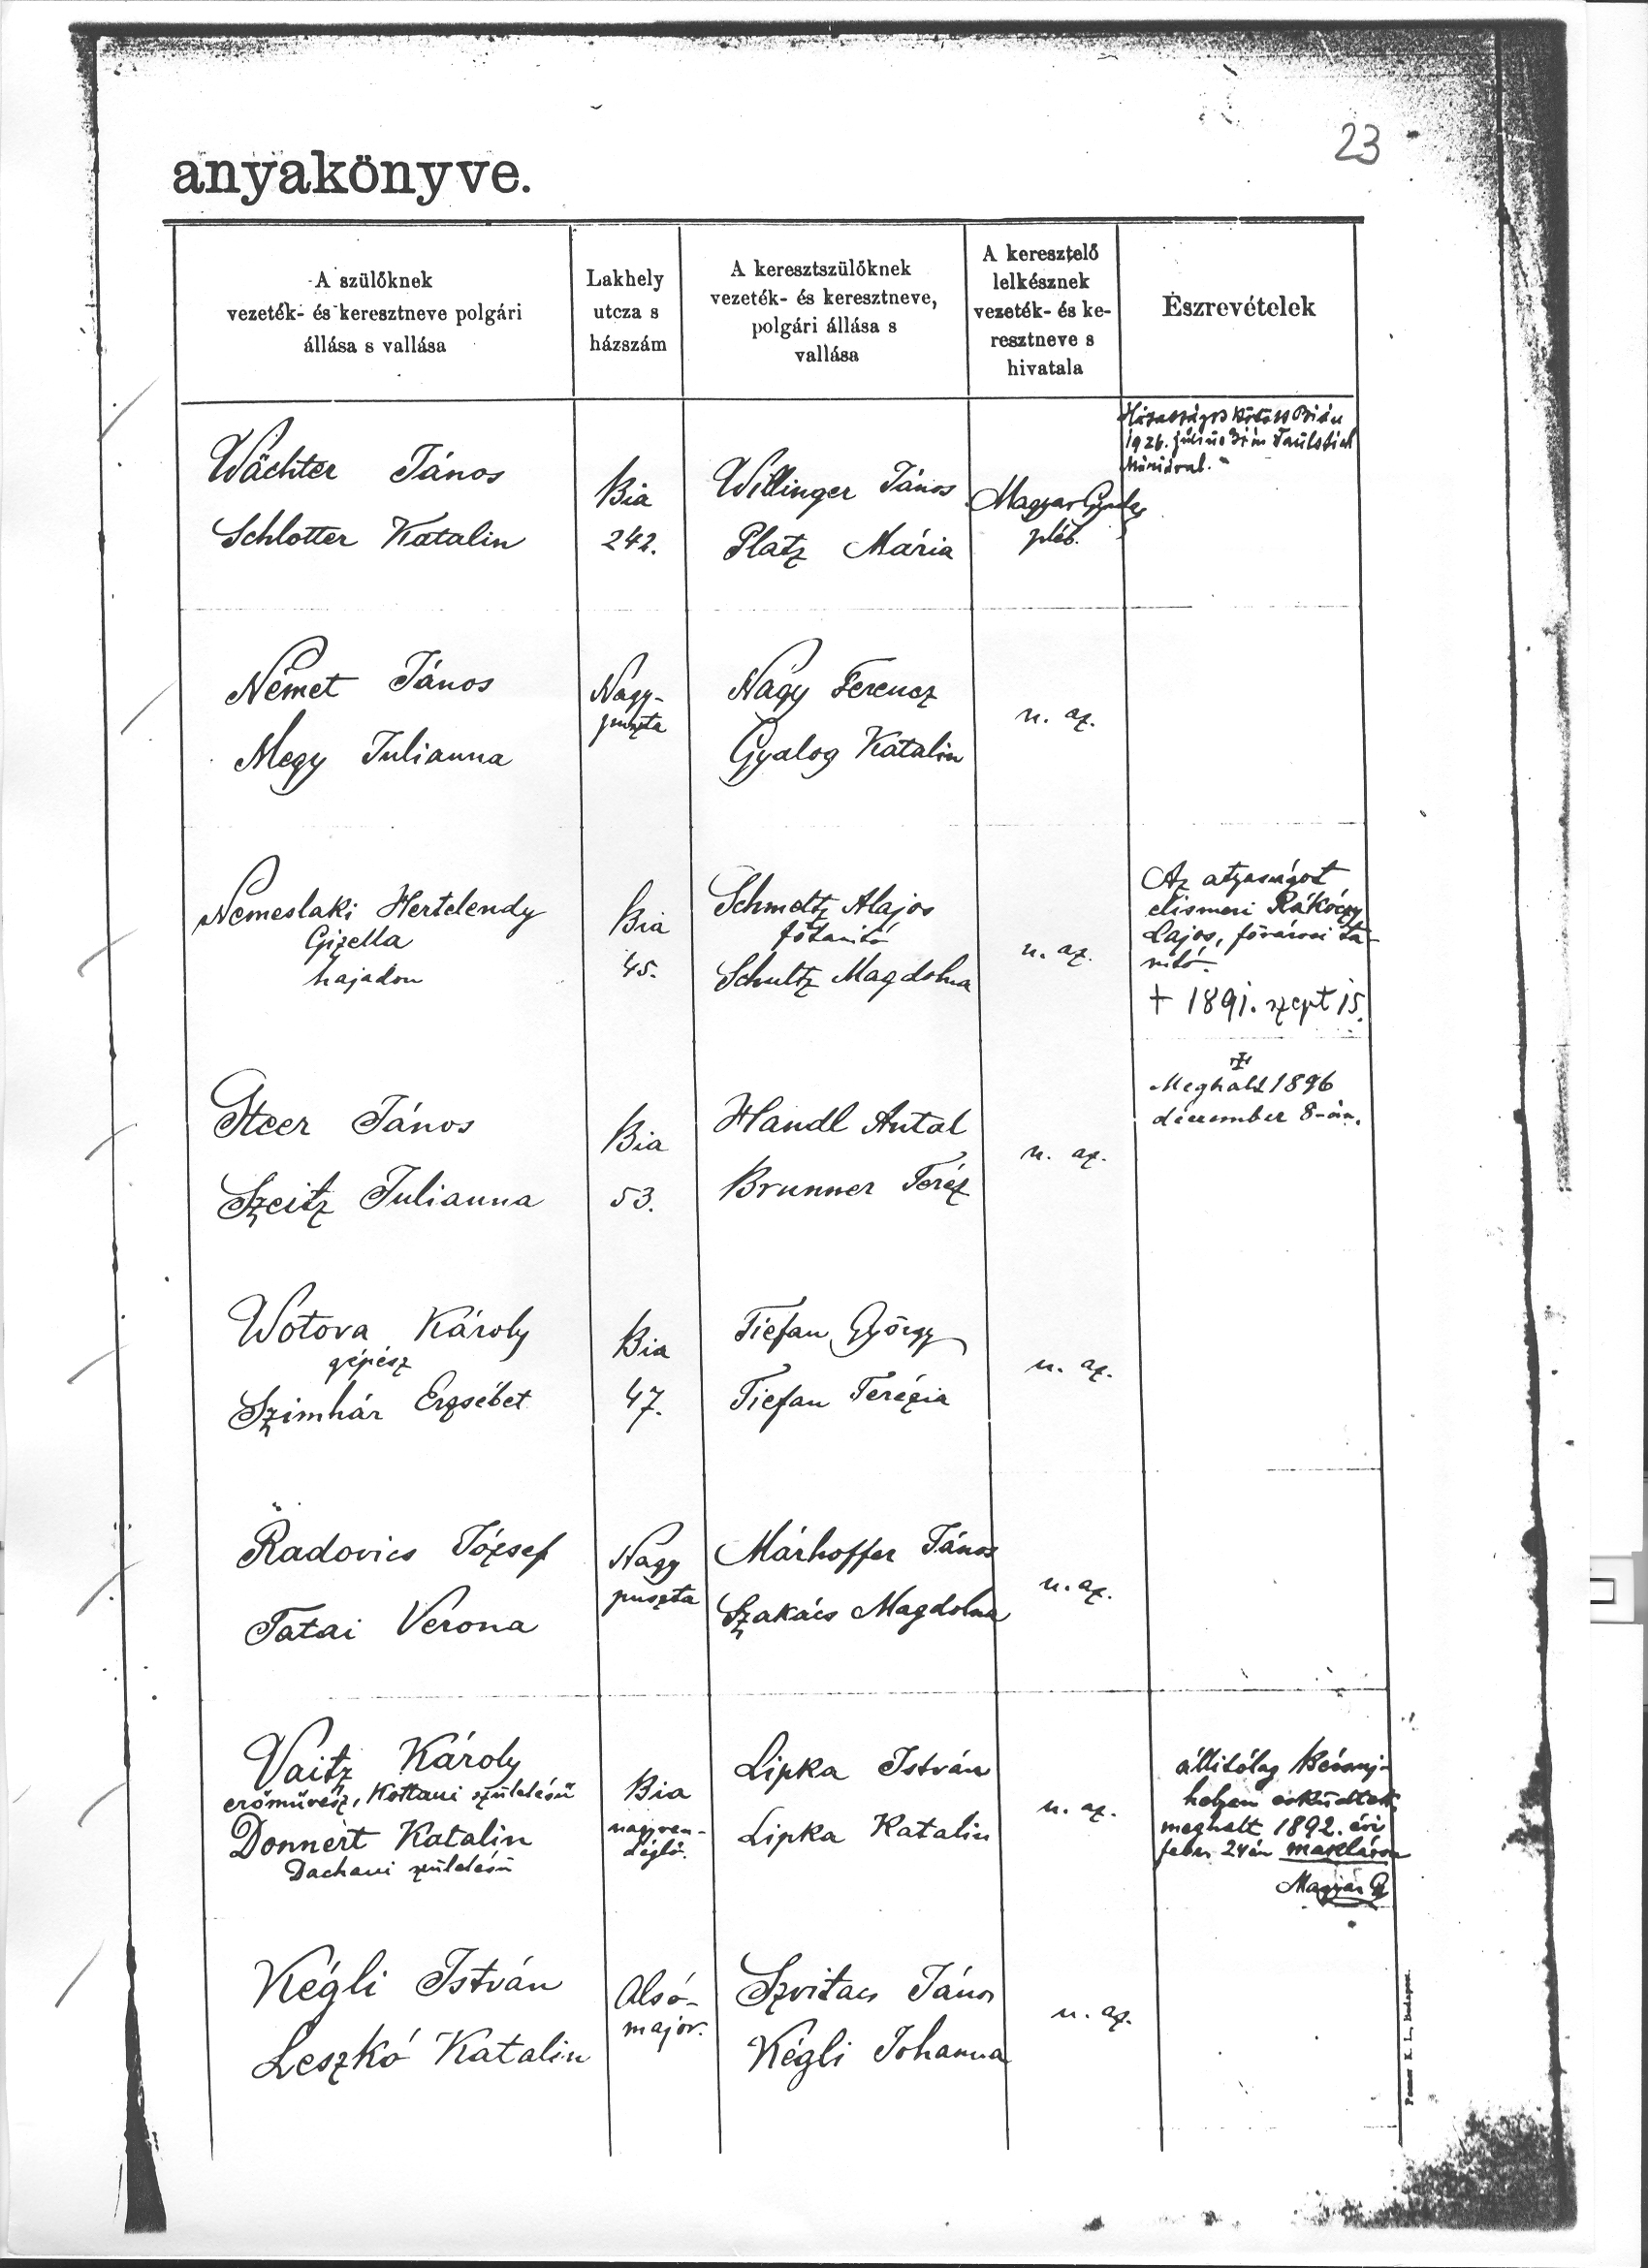 23
anyakönyve.
A szülőknek
vezeték- és keresztneve polgári
állása s vallása
Lakhely
utcza s
házszám
A keresztszülőknek
vezeték- és keresztneve,
polgári állása s
vallása
A keresztelő
lelkésznek
vezeték- és ke-
resztneve s
hivatala
Észrevételek
Wächter János
Schlotter Katalin
Bia
242.
Willinger János
Platz Mária
Magyar
pléb.
Bián
1926. június
Máriával.
Német János
Megy Julianna
Nagy-
puszta
Nagy Ferencz
Gyalog Katalin
u. az.
Nemeslaki Hertelendy
Gizella
hajadon
Bia
45.
Schmeltz Alajos
főtanitó
Schultz Magdolna
u. az.
Az atyaságot
elismeri Rákóczy
Lajos, fővárosi ta-
nitó.
+ 1891. szept 15.
Steer János
Szeitz Julianna
Bia
53.
Handl Antal
Brunner Teréz
u. az.
Meghalt 1896
december 8-án.
Wotova Károly
gépész
Szimhár Erzsébet
Bia
47.
Tiefan György
Tiefan Terézia
u. az.
Radovics József
Tatai Verona
Nagy
puszta
Márhoffer János
Szakács Magdolna
u. az.
Vaitz Károly
erőművész, Kottaui születésű
Donnert Katalin
Dachaui születésű
Bia
nagyven-
déglő.
Lipka István
Lipka Katalin
u. az.
állitólag
helyen esküdtek
meghalt 1892. évi
febr. 24én
Magyar Gy
Kégli István
Leszkó Katalin
Alsó-
major.
Szvitacs János
Kégli Johanna
u. az.